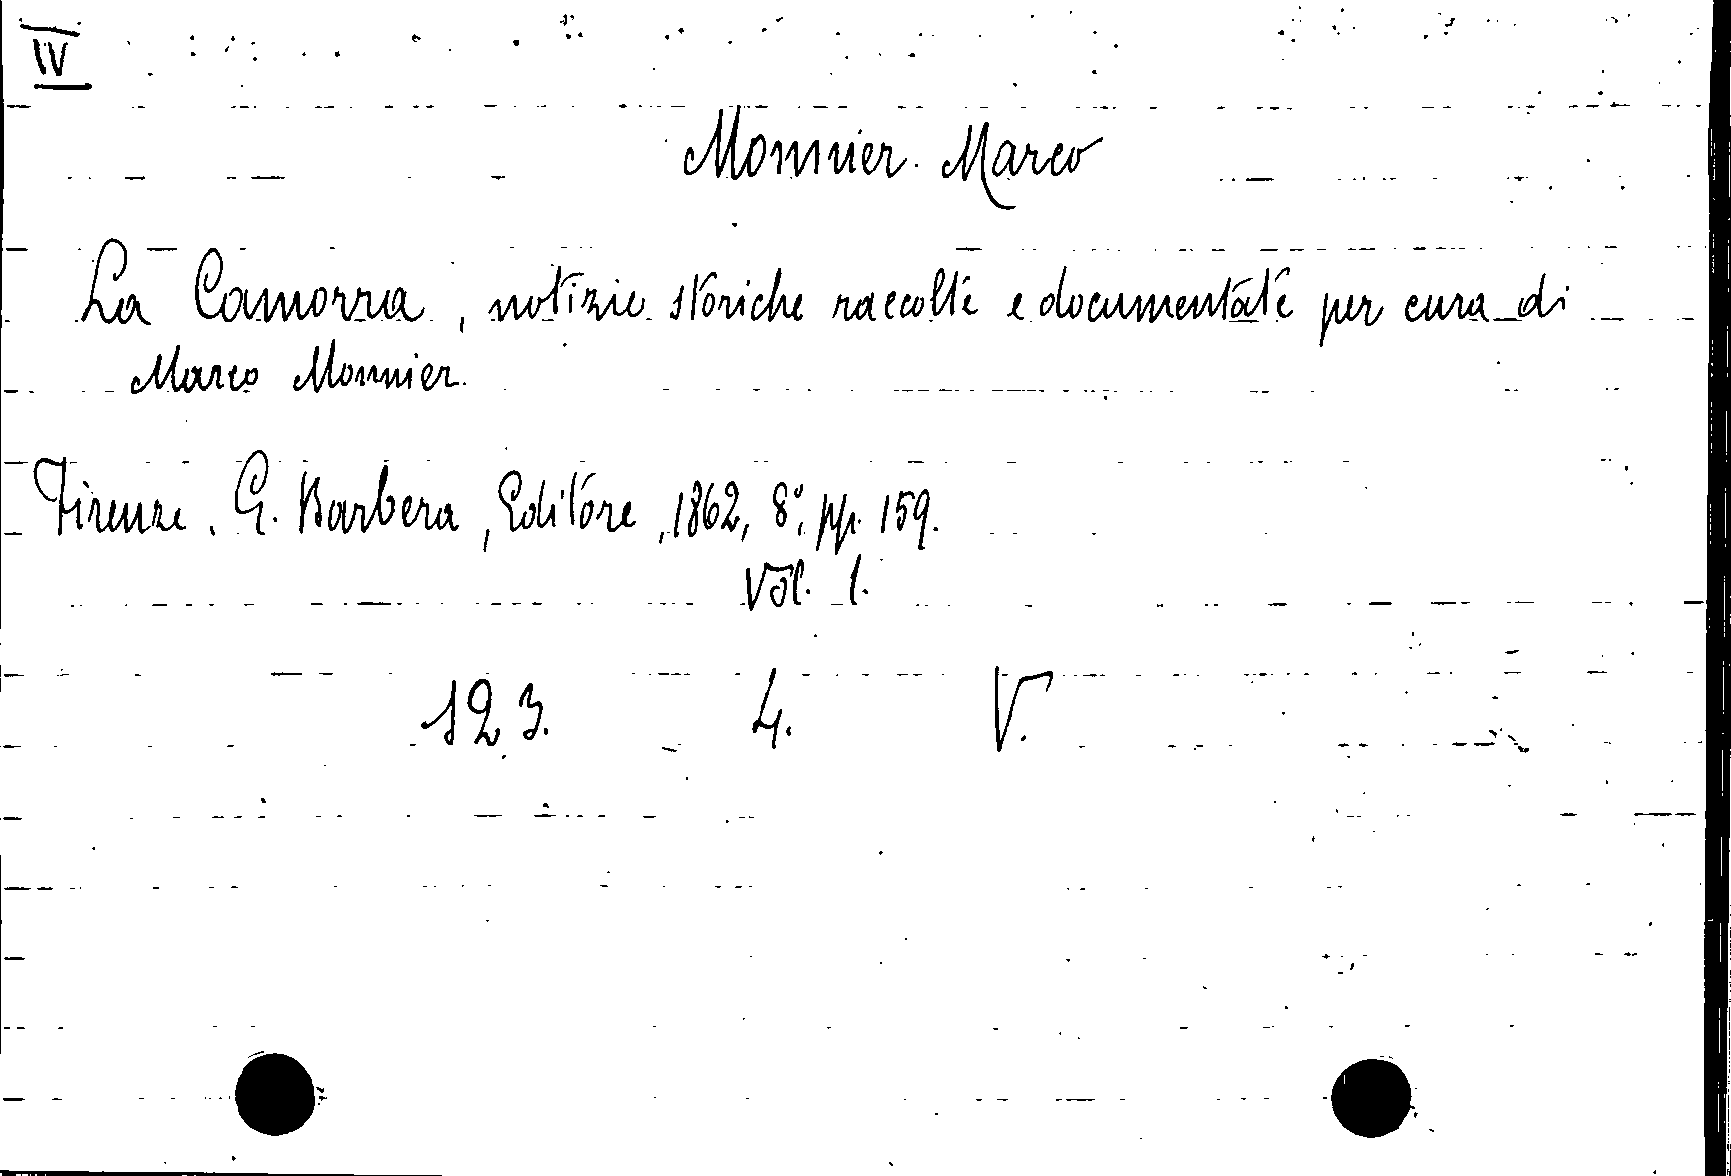 IV
Monnier Marco
La Camorra, notizie storiche raccolte e documentate per cura di
Marco Monnier.
Firenze. G. Barbera, Editore, 1862, 8°, pp. 159.
Vol. 1.
123. 4. V.